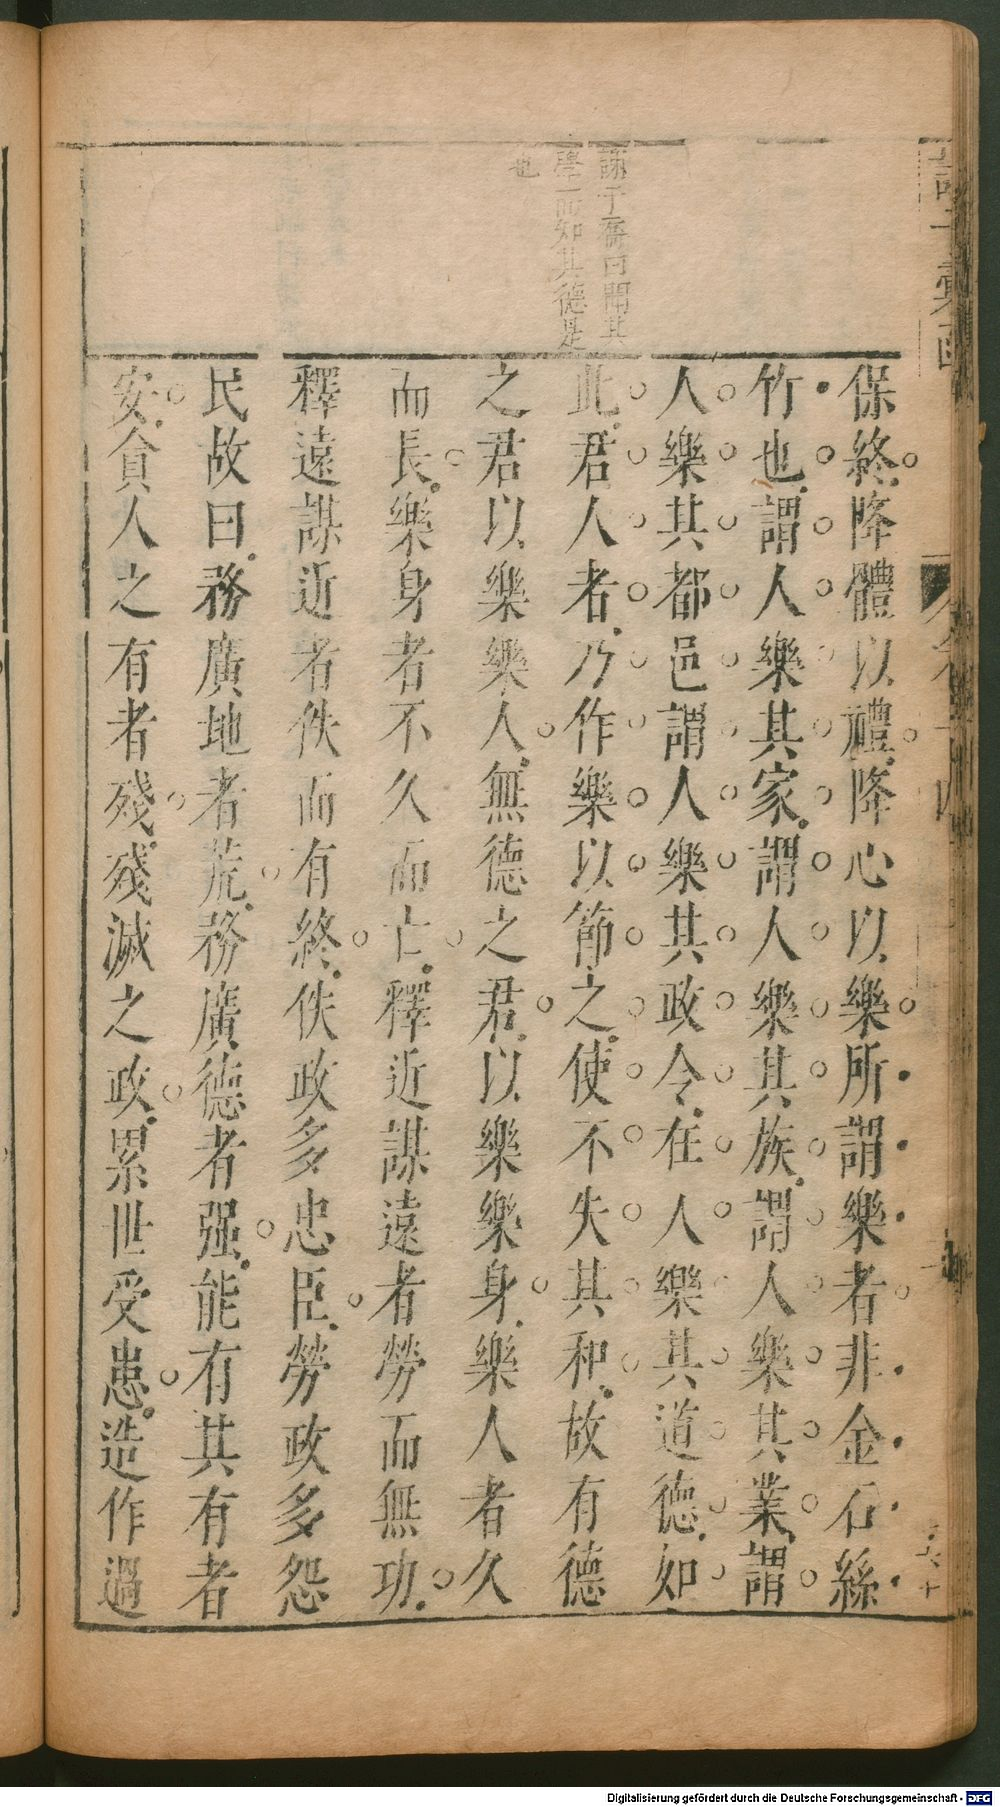 保終降體以禮降心以樂所謂樂者非金石絲
竹也謂人樂其家謂人樂其族謂人樂其業謂
人樂其都邑謂人樂其政令在人樂其道德如
此君人者乃作樂以節之使不失其和故有德
之君以樂樂人無德之君以樂樂身樂人者久
而長樂身者不久而亡釋近謀遠者勞而無功
釋遠謀近者佚而有終佚政多忠臣勞政多怨
民故曰務廣地者荒務廣德者强能有其有者
安貪人之有者殘殘滅之政累世受患造作過
子喬曰聞其
學而知其德是
也
諸子彙函
Digitalisierung gefördert durch die Deutsche Forschungsgemeinschaft - DFG